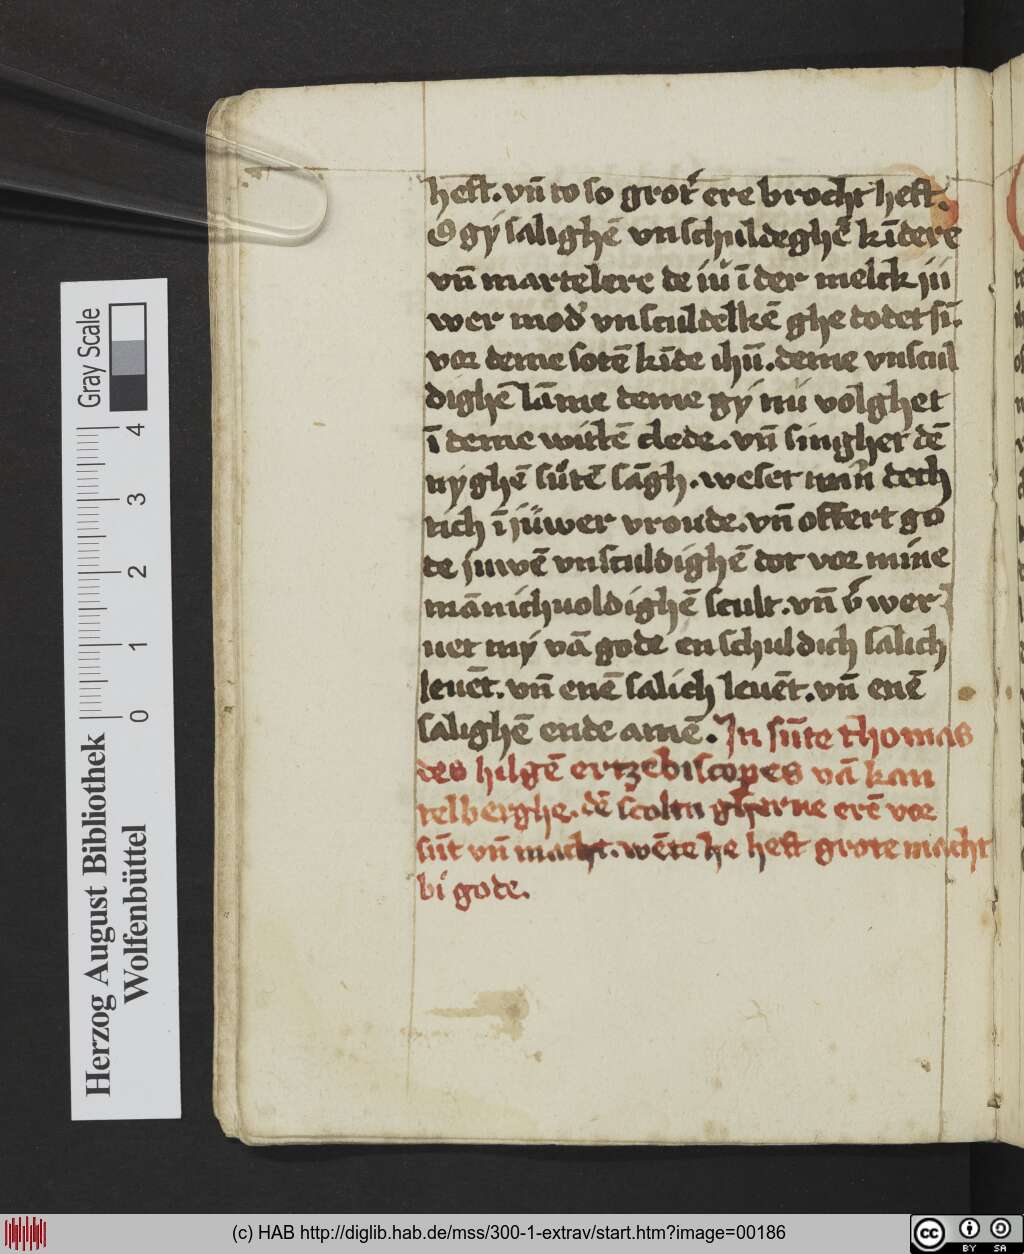 heft. vn̄ to so grot' ere brocht heft.
O gy salighē vnschuldeghē kīdere
vn̄ martelere de iu ī der melck iu
wer mod' vnsculdelkē ghe dodet sī.
vor deme sotē kīde ihū. deme vnscul
dighē lāme deme gy nu volghet
ī deme wittē clede. vn̄ singhet dē
nyghē sutē sāgh. weset min dech
tich ī juwer vroude. vn̄ offert go
de juwē vnsculdighē dot vor mine
mānichuoldighē scult. vn̄ v'wer
uet my vā gode en schuldich salich
leuēt. vn̄ enē salich leuēt. vn̄ enē
salighē ende amē. In sūte thomas
des hilgē ertzebiscopes vā kan
telberghe. dē scoltu gherne erē vor
sūt vn̄ macht. wēte he heft grote macht
bi gode.
Herzog August Bibliothek
Wolfenbüttel
Gray Scale
0 1 2 3 4
(c) HAB http://diglib.hab.de/mss/300-1-extrav/start.htm?image=00186
cc BY SA